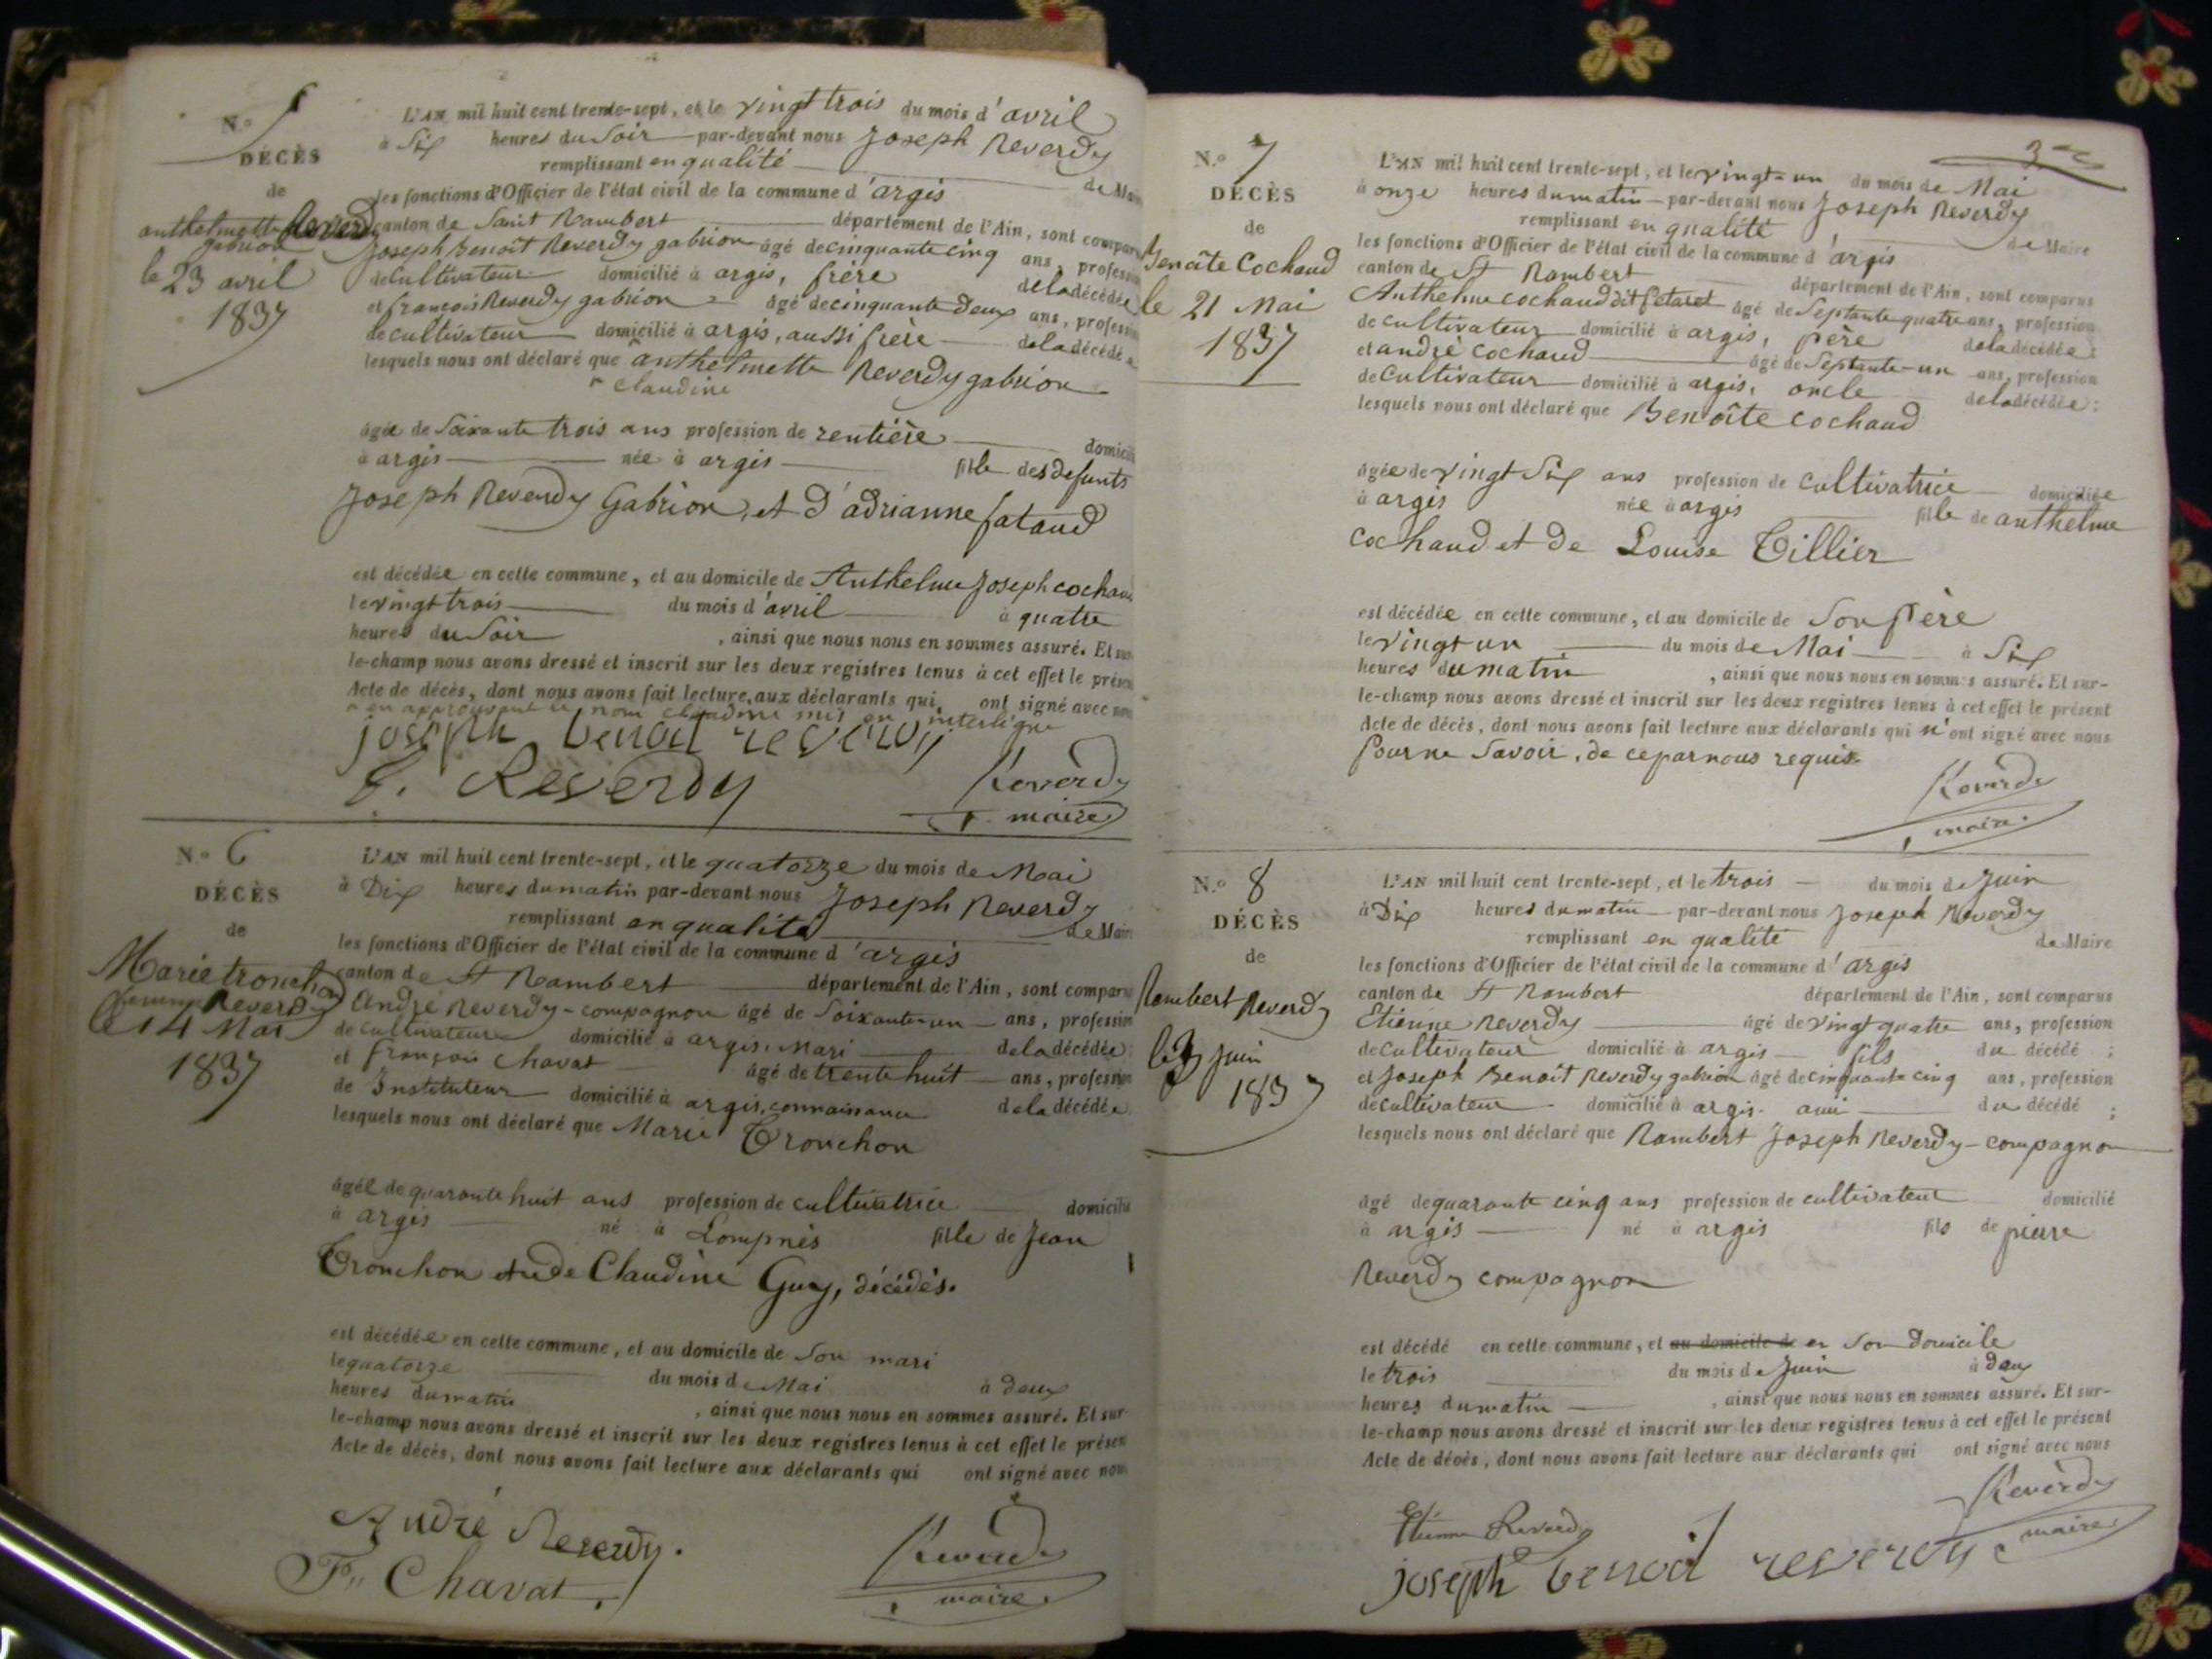 N.o 5
DÉCÈS
de
anthelmette Reverdy
gabrion
le 23 avril
1837
L'AN mil huit cent trente-sept, et le vingt trois du mois d'avril
à Six heures du Soir par-devant nous Joseph Reverdy
remplissant en qualité de Mai
les fonctions d'Officier de l'état civil de la commune d'argis
canton de Saint Rambert département de l'Ain, sont compar
Joseph Benoît Reverdy gabrion âgé de cinquante cinq ans, profess
de Cultivateur domicilié à argis, frère de la décédée
et françois Reverdy gabrion âgé de cinquante Deux ans, profess
de cultivateur domicilié à argis, aussi frère de la décédé
lesquels nous ont déclaré que anthelmette Reverdy gabrion
Claudine
âgée de Soixante trois ans profession de rentière domicili
à argis née à argis fille des defunts
Joseph Reverdy Gabrion, et d'adrianne fataud
est décédée en cette commune, et au domicile de Anthelme Joseph cochau
le vingt trois du mois d'avril à quatre
heures du Soir , ainsi que nous nous en sommes assuré. Et sur
le-champ nous avons dressé et inscrit sur les deux registres tenus à cet effet le prése
Acte de décès, dont nous avons fait lecture aux déclarants qui ont signé avec nou
en approuvant le nom claudine mis en interligne
joseph benoit reverdy
f. Reverdy Reverdy
maire
N.o 6
DÉCÈS
de
Marie tronchon
femme Reverdy
le 14 Mai
1837
L'AN mil huit cent trente-sept, et le quatorze du mois de Mai
à Dix heures du matin par-devant nous Joseph Reverdy
remplissant en qualité de Mair
les fonctions d'Officier de l'état civil de la commune d'argis
canton de St Rambert département de l'Ain, sont comparu
André Reverdy-compagnon âgé de Soixante-un ans, profession
de cultivateur domicilié à argis, mari de la décédée;
et françois Chavat âgé de trente huit ans, profession
de Instituteur domicilié à argis, connaissance de la décédée
lesquels nous ont déclaré que Marie Tronchon
âgée de quarante huit ans profession de cultivatrice domicilié
à argis né à Lompnès fille de Jean
Tronchon et de Claudine Guy, décédés.
est décédée en cette commune, et au domicile de Son mari
le quatorze du mois de Mai à deux
heures du matin , ainsi que nous nous en sommes assuré. Et sur
le-champ nous avons dressé et inscrit sur les deux registres tenus à cet effet le présen
Acte de décès, dont nous avons fait lecture aux déclarants qui ont signé avec nou
André Reverdy.
F. Chavat Reverdy
maire
3
N.o 7
DÉCÈS
de
Benoîte Cochaud
le 21 Mai
1837
L'AN mil huit cent trente-sept, et le vingt-un du mois de Mai
à onze heures du matin par-devant nous Joseph Reverdy
remplissant en qualité de Maire
les fonctions d'Officier de l'état civil de la commune d'argis
canton de St Rambert département de l'Ain, sont comparus
Anthelme cochaud dit petaret âgé de Septante quatre ans, profession
de cultivateur domicilié à argis, père de la décédée;
et andré cochaud âgé de Septante-un ans, profession
de Cultivateur domicilié à argis, oncle de la décédée;
lesquels nous ont déclaré que Benoîte cochaud
âgée de vingt Six ans profession de cultivatrice domiciliée
à argis née à argis fille de anthelme
cochaud et de Louise Tillier
est décédée en cette commune, et au domicile de Son père
le vingt un du mois de Mai à Six
heures du matin , ainsi que nous nous en sommes assuré. Et sur-
le-champ nous avons dressé et inscrit sur les deux registres tenus à cet effet le présent
Acte de décès, dont nous avons fait lecture aux déclarants qui n'ont signé avec nous
pour ne Savoir, de ce par nous requis.
Reverdy
maire
N.o 8
DÉCÈS
de
Rambert Reverdy
le 3 juin
1837
L'AN mil huit cent trente-sept, et le trois du mois de Juin
à Dix heures du matin par-devant nous Joseph Reverdy
remplissant en qualité de Maire
les fonctions d'Officier de l'état civil de la commune d'argis
canton de St Rambert département de l'Ain, sont comparus
Etienne Reverdy âgé de vingt quatre ans, profession
de cultivateur domicilié à argis fils du décédé;
et Joseph Benoît Reverdy gabrion âgé de cinquante cinq ans, profession
de cultivateur domicilié à argis. ami du décédé;
lesquels nous ont déclaré que Rambert Joseph Reverdy-compagnon
âgé de quarante cinq ans profession de cultivateur domicilié
à argis né à argis fils de pierre
Reverdy compagnon
est décédé en cette commune, et au domicile de en Son Domicile
le trois du mois de Juin à deux
heures du matin , ainsi que nous nous en sommes assuré. Et sur-
le-champ nous avons dressé et inscrit sur les deux registres tenus à cet effet le présent
Acte de décès, dont nous avons fait lecture aux déclarants qui ont signé avec nous
Reverdy
Etienne Reverdy maire
joseph benoit reverdy